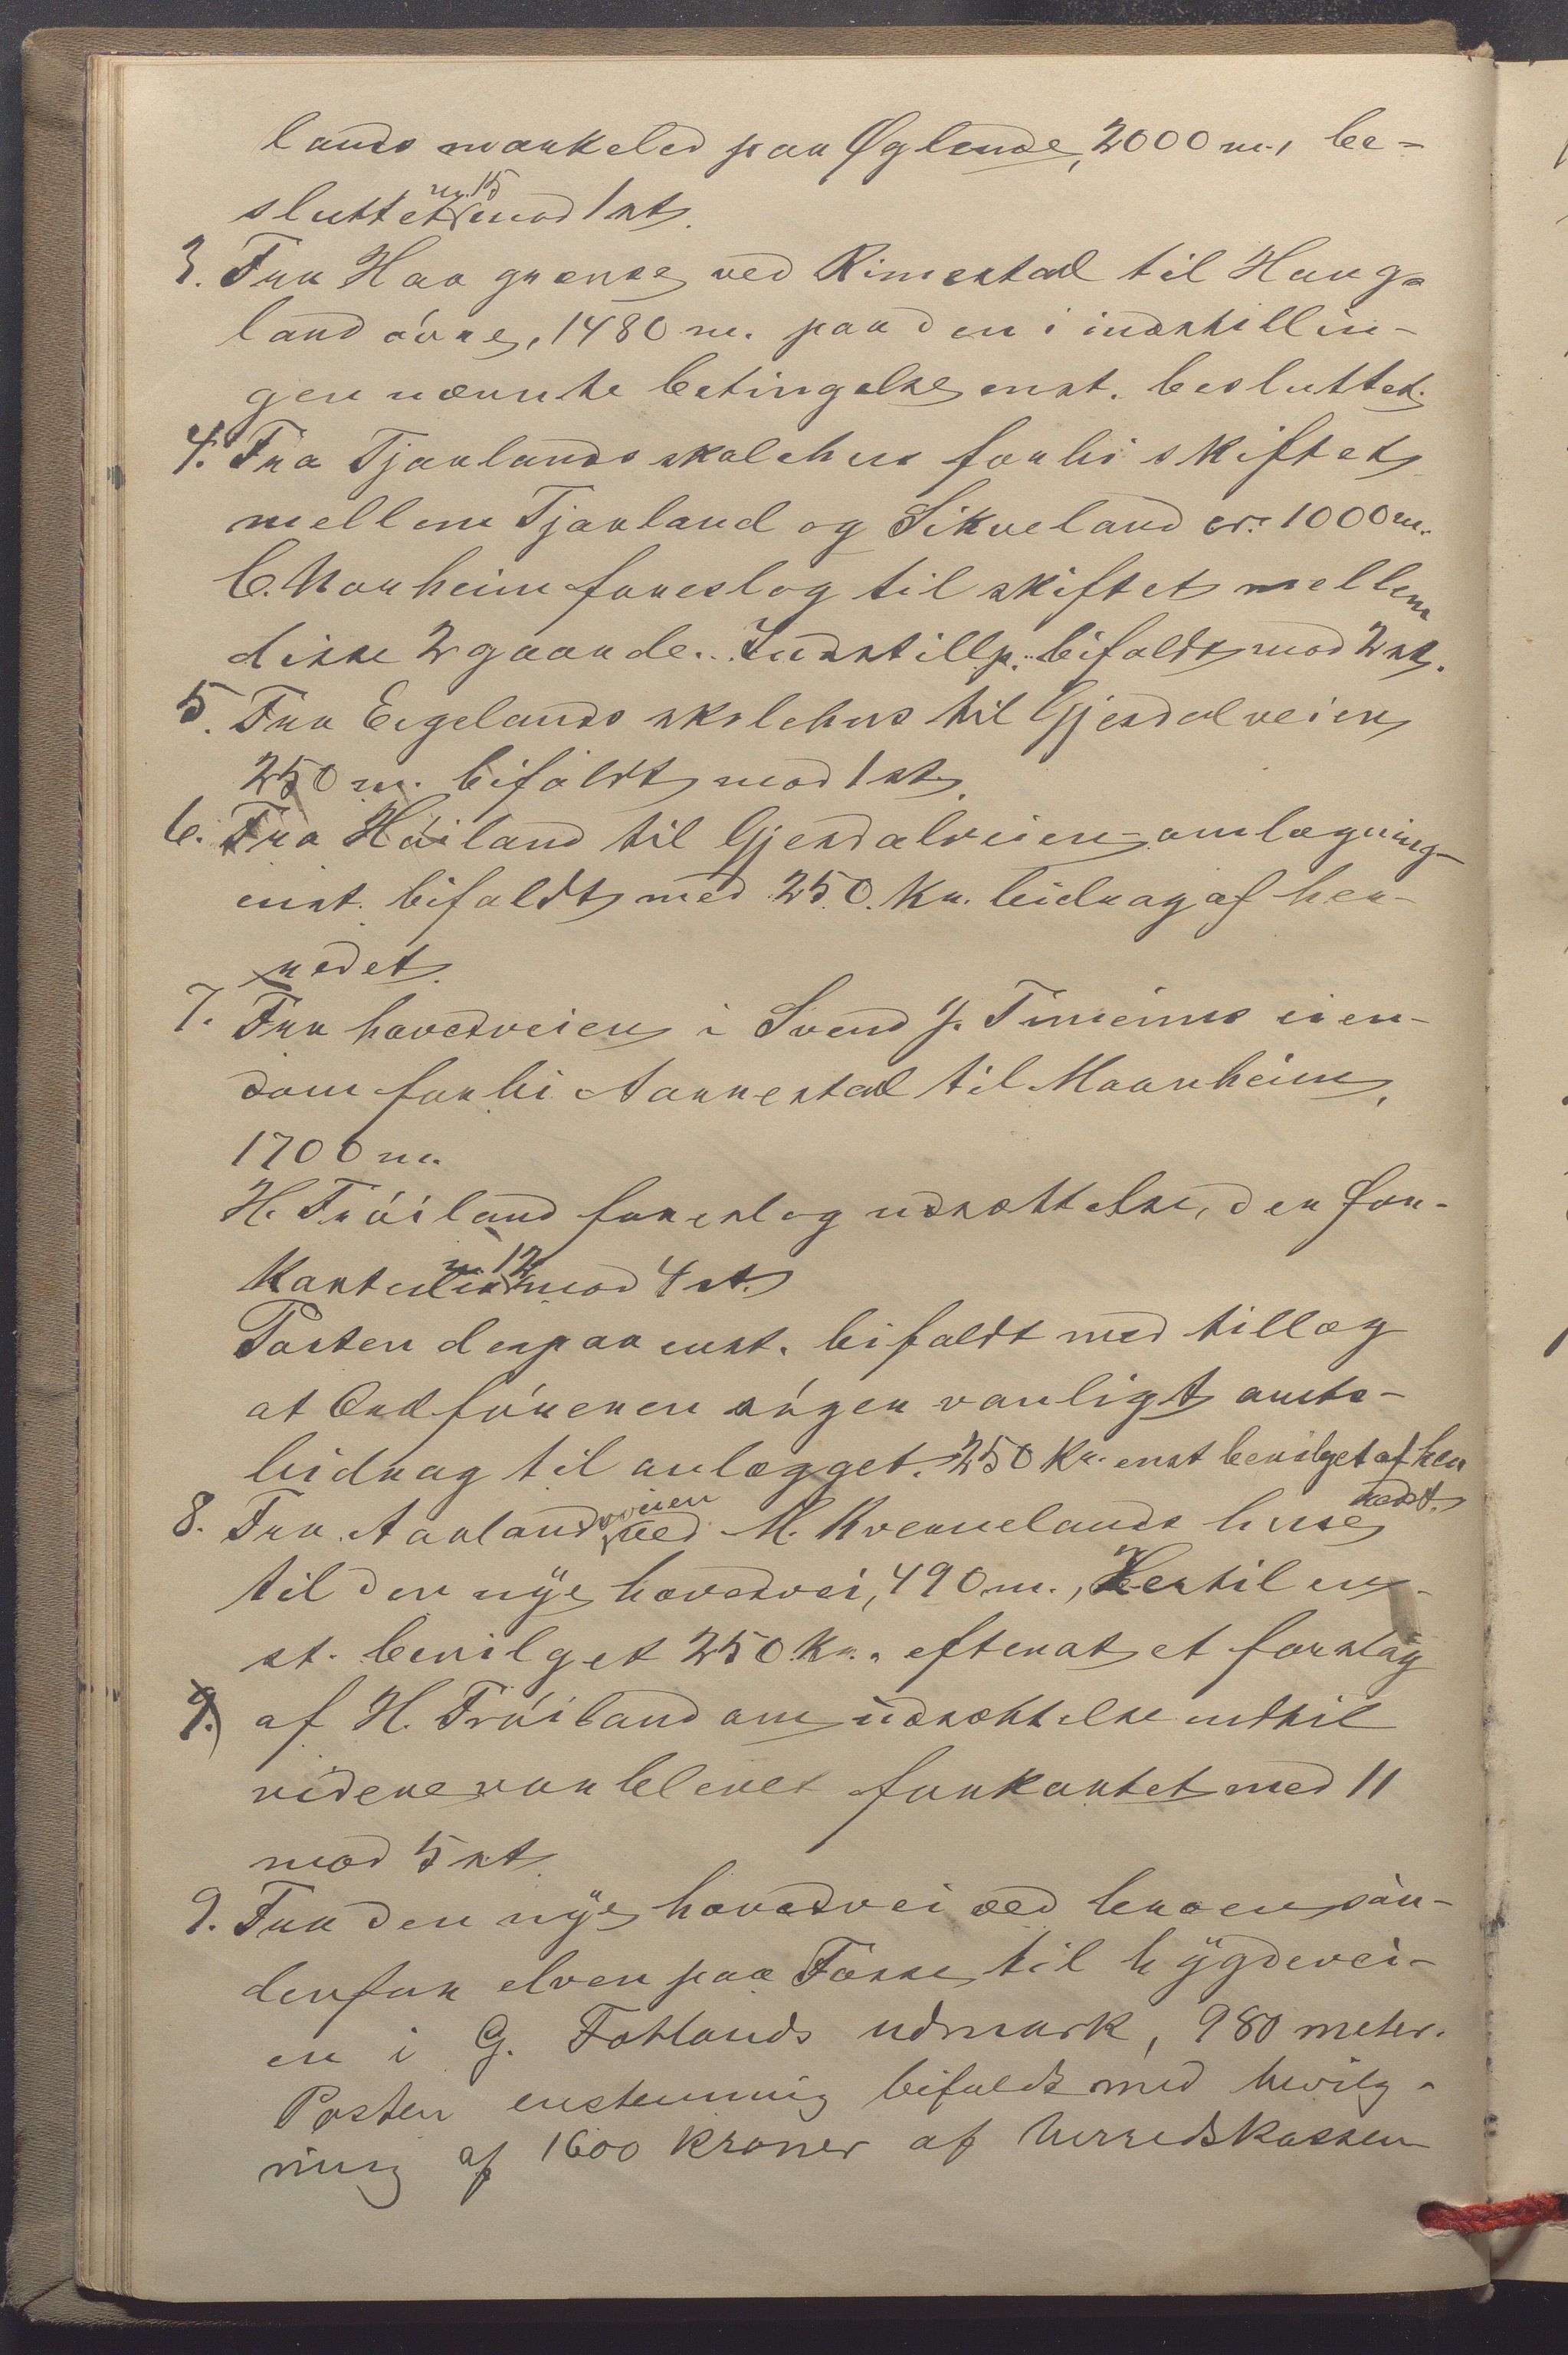 lands markeled paa Øglende, 2000 m., be-
sluttet m. 15 mod 1 st.
3. Fra Haa grense ved Rimestad til Haug-
land övre, 1480 m. paa den i indstillin-
gen nævnte betingelse enst. besluttet.
4. Fra Tjaalands skolehus forbi skiftet
mellem Tjaaland og Sikveland cr. 1000 m.
C. Norheim foreslog til skiftet mellem
disse 2 gaarde. Indstillg. bifaldt mod 2 st.
5. Fra Eigelands skolehus til Gjesdalveien
250 m. bifaldt mod 1 st.
6. Fra Höiland til Gjesdalveien - omlægning -
enst. bifaldt med 250 Kr. bidrag af her-
redet.
7. Fra hovedveien i Svend J. Timeims eien-
dom forbi Aarrestad til Maarheim,
1700 m.
H. Fröiland foreslog udsættelse, der for-
kastedes m 12 mod 4 st.
Posten derpaa enst. bifaldt med tillæg
at Ordföreren söger vanligt amts-
bidrag til anlægget. 250 Kr. enst bevilget af her
redet.
8. Fra Aarland veien ved M. Kvernelands huse
til den nye hovedvei, 490 m., Hertil en-
st. bevilget 250 Kr. efterat et forslag
9. af H. Fröiland om udsættelse indtil
videre var blevet forkastet med 11
mod 5 st
9. Fra den nye hovedvei ved broen sön-
denfor elven paa Fosse til bygdevei-
en i G. Fotlands udmark, 980 meter.
Posten enstemmig bifaldt med bevilg-
ning af 1600 kroner af herredskassen